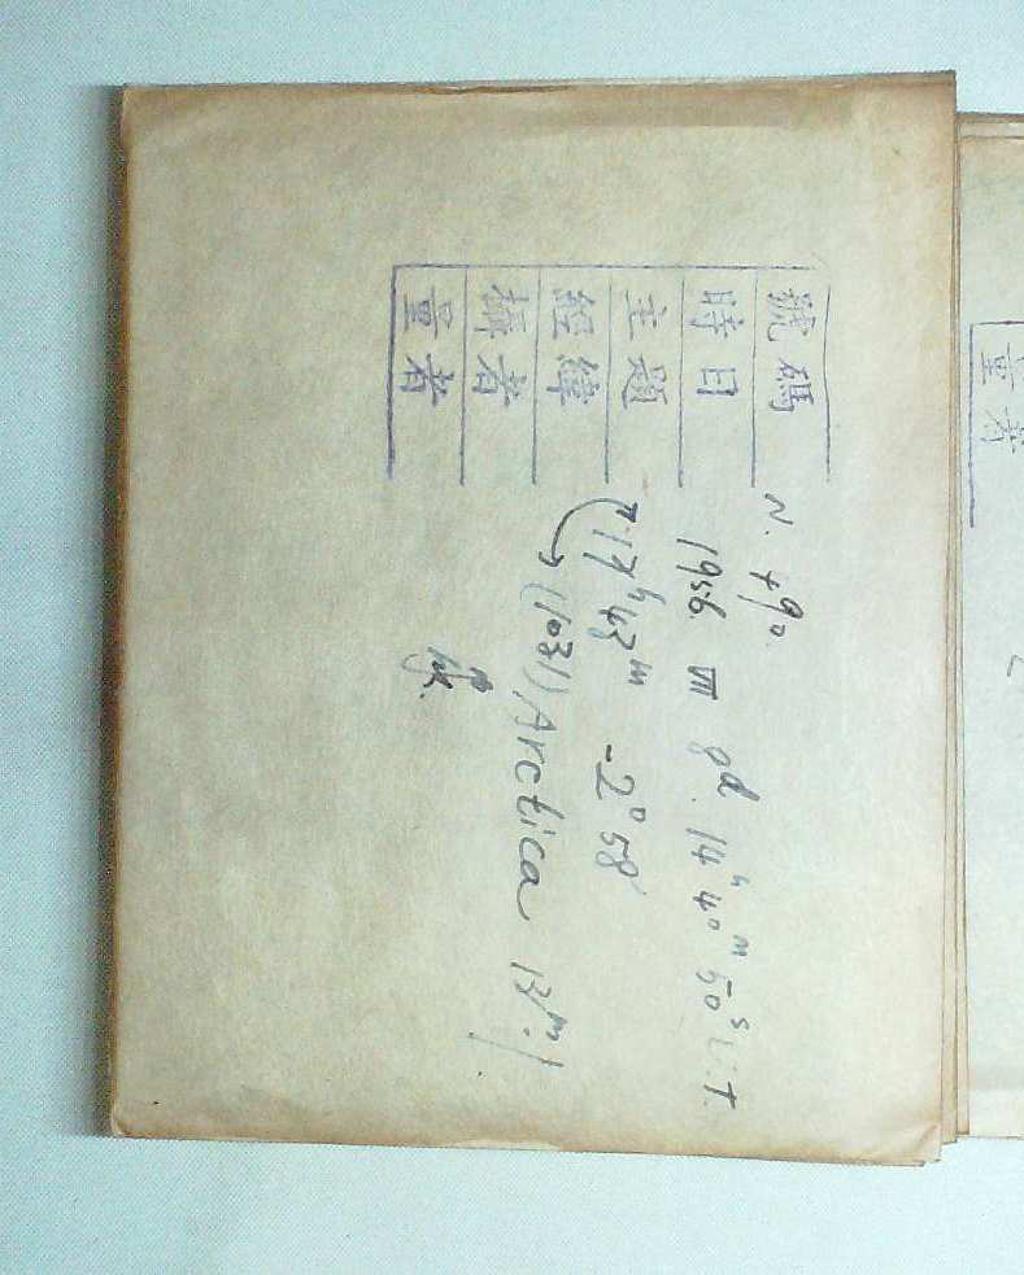 號碼 N. 490.
時日 1956. VII 8d. 14h 40m 50s U.T.
主題 17h 43m -2° 58'
經緯 (1031) Arctica 13m.1
攝者
量者
量者